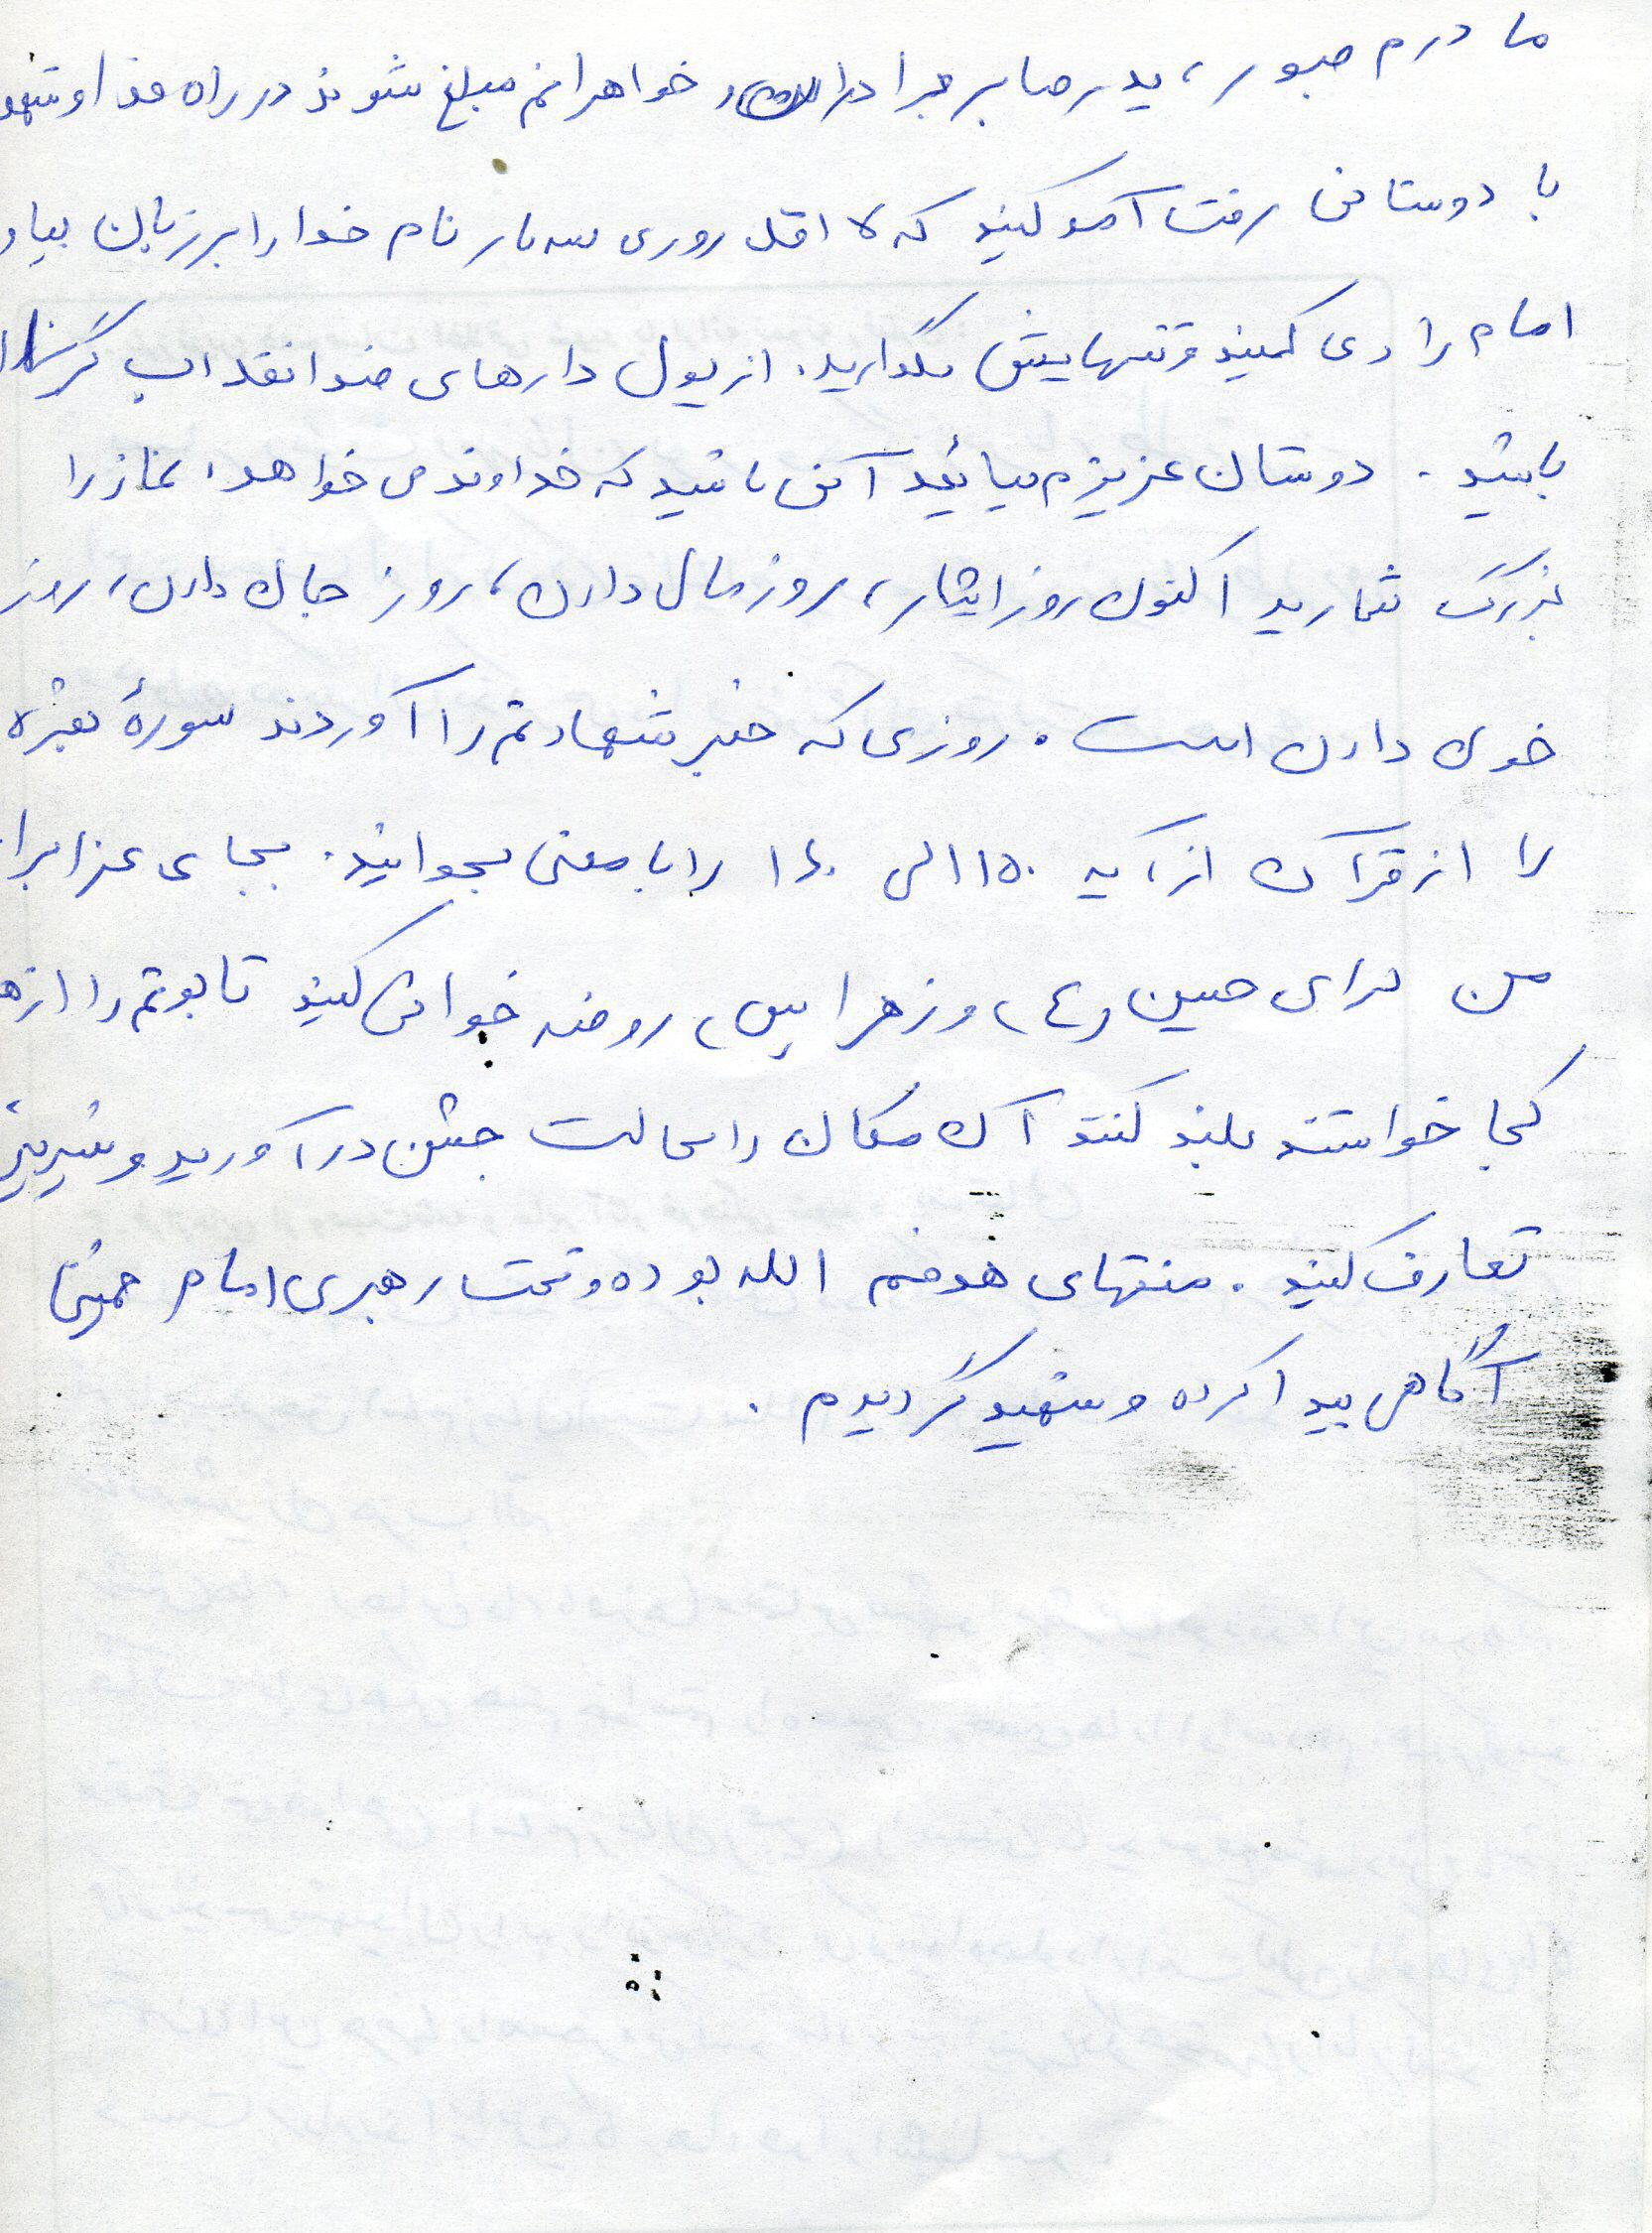 مادرم صبور، پدر صابر برادرانم و خواهرانم مبلغ شوند در راه خدا و شهد
با دوستانی رفت آمد کنید که لااقل روزی سه بار نام خدا را بر زبان بیاور
امام را دعا کنید و تنهایش نگذارید. از پول دارهای ضد انقلاب گریزان
باشید. دوستان عزیزم بیائید آنی باشید که خداوند می خواهد، نماز را
بزرگ شمارید اکنون روز ایثار، روز مال دادن، روز جان دادن، روز
خون دادن است. روزی که خبر شهادتم را آوردند سورهٔ بقره
را از قرآن از آیه ۱۵۰ الی ۱۶۰ را با معنی بخوانید. بجای عزا برا
من برای حسین (ع) و زهرا (س) روضه خوانی کنید تابوتم را از هر
کجا خواستند بلند کنند آن مکان را بحالت جشن درآورید و شیرینی
تعارف کنید. منتهای هدفم الله بوده و تحت رهبری امام خمینی
آگاهی پیدا کرده و شهید گردیدم.